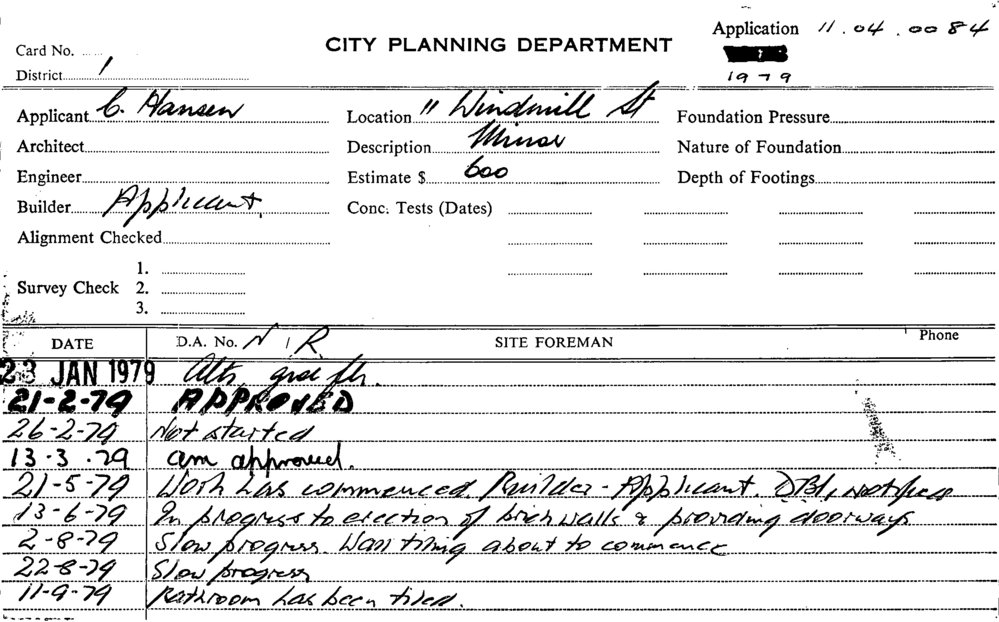 Application 11.04.0084
CITY PLANNING DEPARTMENT
Card No.
District 1
1979
Applicant C. Hansen
Location 11 Windmill St
Foundation Pressure
Architect
Description Minor
Nature of Foundation
Engineer
Estimate $ 600
Depth of Footings
Builder Applicant.
Conc. Tests (Dates)
Alignment Checked
1.
Survey Check 2.
3.
DATE
D.A. No. N/R
SITE FOREMAN
Phone
23 JAN 1979 Alts, grd flr.
21-2-79 APPROVED
26-2-79 Not started
13-3-79 am approved.
21-5-79 Work has commenced. Builder - Applicant. notified
13-6-79 In progress to erection of brick walls & providing doorways
2-8-79 Slow progress. Wall tiling about to commence
22-8-79 Slow progress
11-9-79 Bathroom has been tiled.